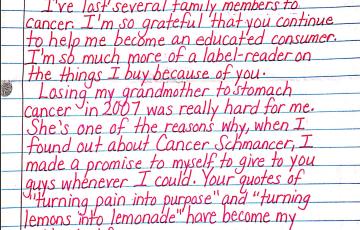 I've lost several family members to
cancer. I'm so grateful that you continue
to help me become an educated consumer.
I'm so much more of a label-reader on
the things I buy because of you.
Losing my grandmother to stomach
cancer in 2007 was really hard for me.
She's one of the reasons why, when I
found out about Cancer Schmancer, I
made a promise to myself to give to you
guys whenever I could. Your quotes of
"turning pain into purpose" and "turning
lemons into lemonade" have become my